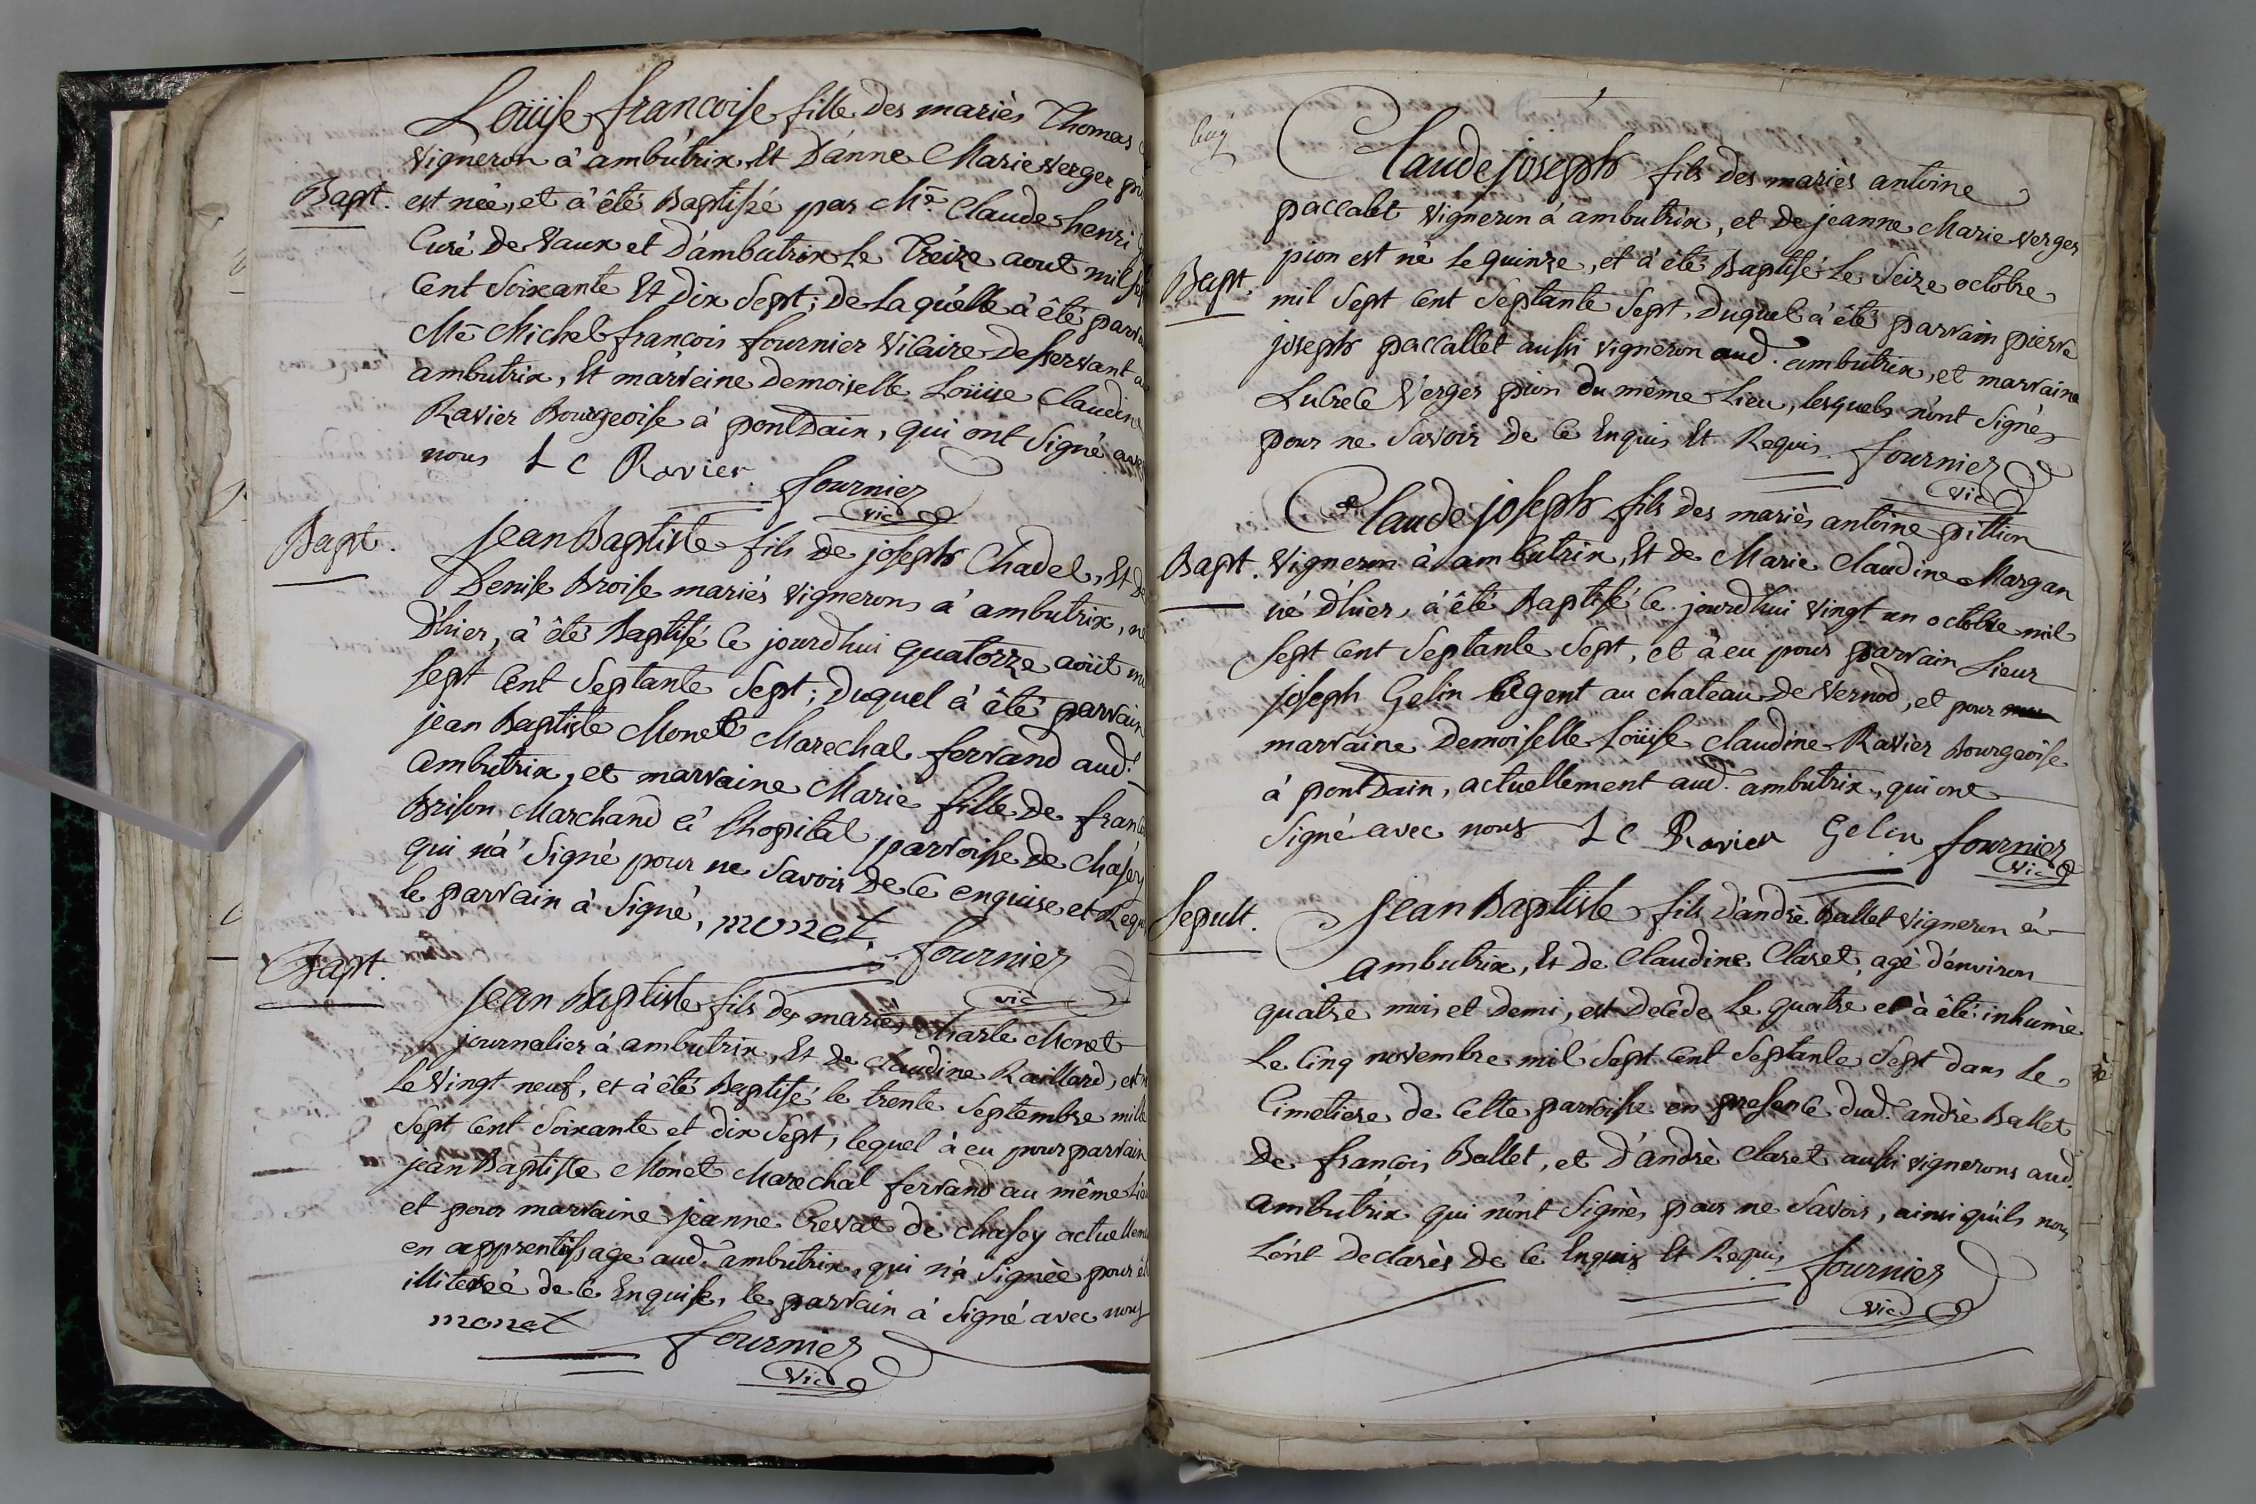 Loüise francoise fille des mariés Thomas
Vigneron à ambutrix, Et D'anne Marie Verger
Bapt. est née, et à été Baptisée par Mre Claude henri
Curé de Vaux et D'ambutrix Le Treize aout mil sept
Cent Soixante Et Dix Sept; de Laquelle à été parrain
Mre Michel françois fournier Vicaire Desservant
ambutrix, Et marreine Demoiselle Loüise Claudine
Ravier Bourgeoise à pontDain, qui ont Signé avec
nous L C Ravier. fournier
vic
Bapt. Jean Baptiste fils de joseph Chadel, Et De
Denise Broise mariés vignerons à ambutrix, né
D'hier, à été Baptisé Ce jourdhui quatorze aoüt mil
Sept Cent Septante Sept; Duquel à été parrain
jean Baptiste Monet Marechal ferrand aud.
ambutrix, et marraine Marie fille de
Brison Marchand à Lhopital parroisse de Chaséy
qui n'a Signé pour ne Savoir de Ce enquise et Requise
le parrain à Signé, monet. fournier
vic
Bapt. Jean Baptiste fils des mariés Charle Monet
journalier à ambutrix, Et de Claudine Raillard, est né
Le Vingt neuf, et à été Baptisé le trente Septembre mille
Sept Cent Soixante et dix Sept, lequel à eu pour parrain
jean Baptiste Monet Marechal ferrand au même Lieu
et pour marraine jeanne Crevat de chasey actuellement
en apprentissage aud. ambutrix, qui n'a Signée pour être
illiterée de Ce Enquise, le parrain à Signé avec nous
monet fournier
vic
Claude joseph fils des mariés antoine
paccalet Vigneron à ambutrix, et de jeanne Marie verger
pion est né le quinze, et à été Baptisé Le Seize octobre
Bapt. mil Sept Cent Septante Sept, Duquel à été parrain pierre
joseph paccallet aussi vigneron aud. ambutrix, et marraine
Lucrece Verger pion du même Lieu, lesquels n'ont Signés
pour ne Savoir de Ce Enquis Et Requis. fournier
vic
Claude joseph fils des mariés antoine pittion
Bapt. Vigneron à ambutrix, Et de Marie Claudine Margan
né d'hier, à été Baptisé Ce jourdhui Vingt un octobre mil
Sept Cent Septante Sept, et à eu pour parrain Sieur
joseph Gelin Agent au chateau de Vernod, et pour
marraine Demoiselle Loüise Claudine Ravier Bourgeoise
à pontDain, actuellement aud. ambutrix, qui ont
Signé avec nous L C Ravier Gelin fournier
vic
Sepult. Jean Baptiste fils d'andré Ballet vigneron à
ambutrix, Et de Claudine Claret, agé d'environ
quatre mois et Demi, est Decedé Le quatre et à été inhumé
Le Cinq novembre mil Sept Cent Septante Sept dans Le
Cimetiere de Cette parroisse en presence dud. andré Ballet
De françois Ballet, et D'andré Claret aussi vignerons aud.
ambutrix qui n'ont Signés pour ne Savoir, ainsi qu'ils nous
L'ont Declarés De Ce Enquis Et Requis fournier
vic